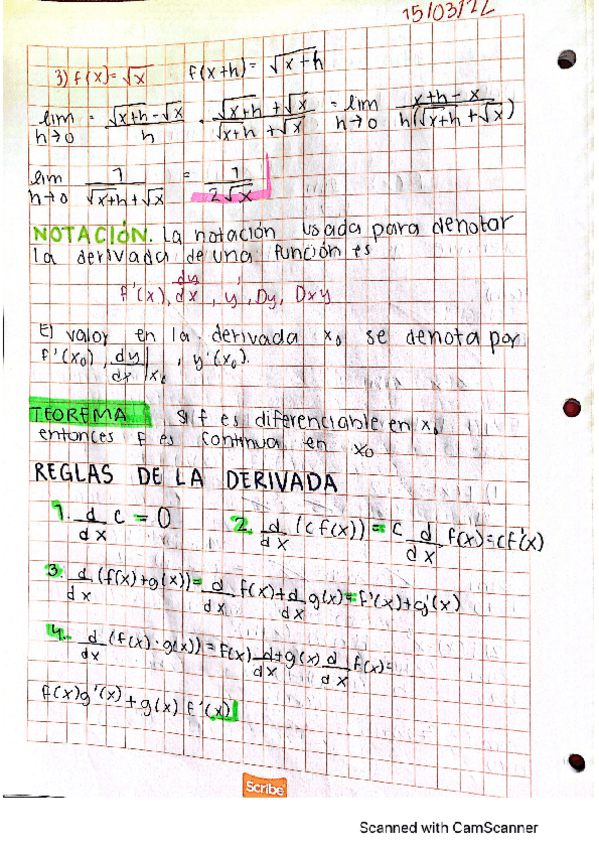 15/03/22
3) f(x)=√x f(x+h)= √x+h
lim h→0 = √x+h - √x / h · √x+h + √x / √x+h + √x = lim h→0 x+h - x / h(√x+h + √x)
lim h→0 1 / √x+h + √x = 1 / 2√x
NOTACIÓN. La notación usada para denotar
la derivada de una función es
f'(x), dy/dx, y', Dy, Dxy
El valor en la derivada x₀ se denota por
f'(x₀), dy/dx |x₀, y'(x₀).
TEOREMA Si f es diferenciable en x₀
entonces f es continua en x₀
REGLAS DE LA DERIVADA
1. d/dx c = 0 2. d/dx (c f(x)) = c d/dx f(x) = cf'(x)
3. d/dx (f(x)+g(x)) = d/dx f(x) + d/dx g(x) = f'(x)+g'(x)
4. d/dx (f(x)·g(x)) = f(x) d/dx + g(x) d/dx f(x) =
f(x)g'(x) + g(x) f'(x)
Scribe
Scanned with CamScanner